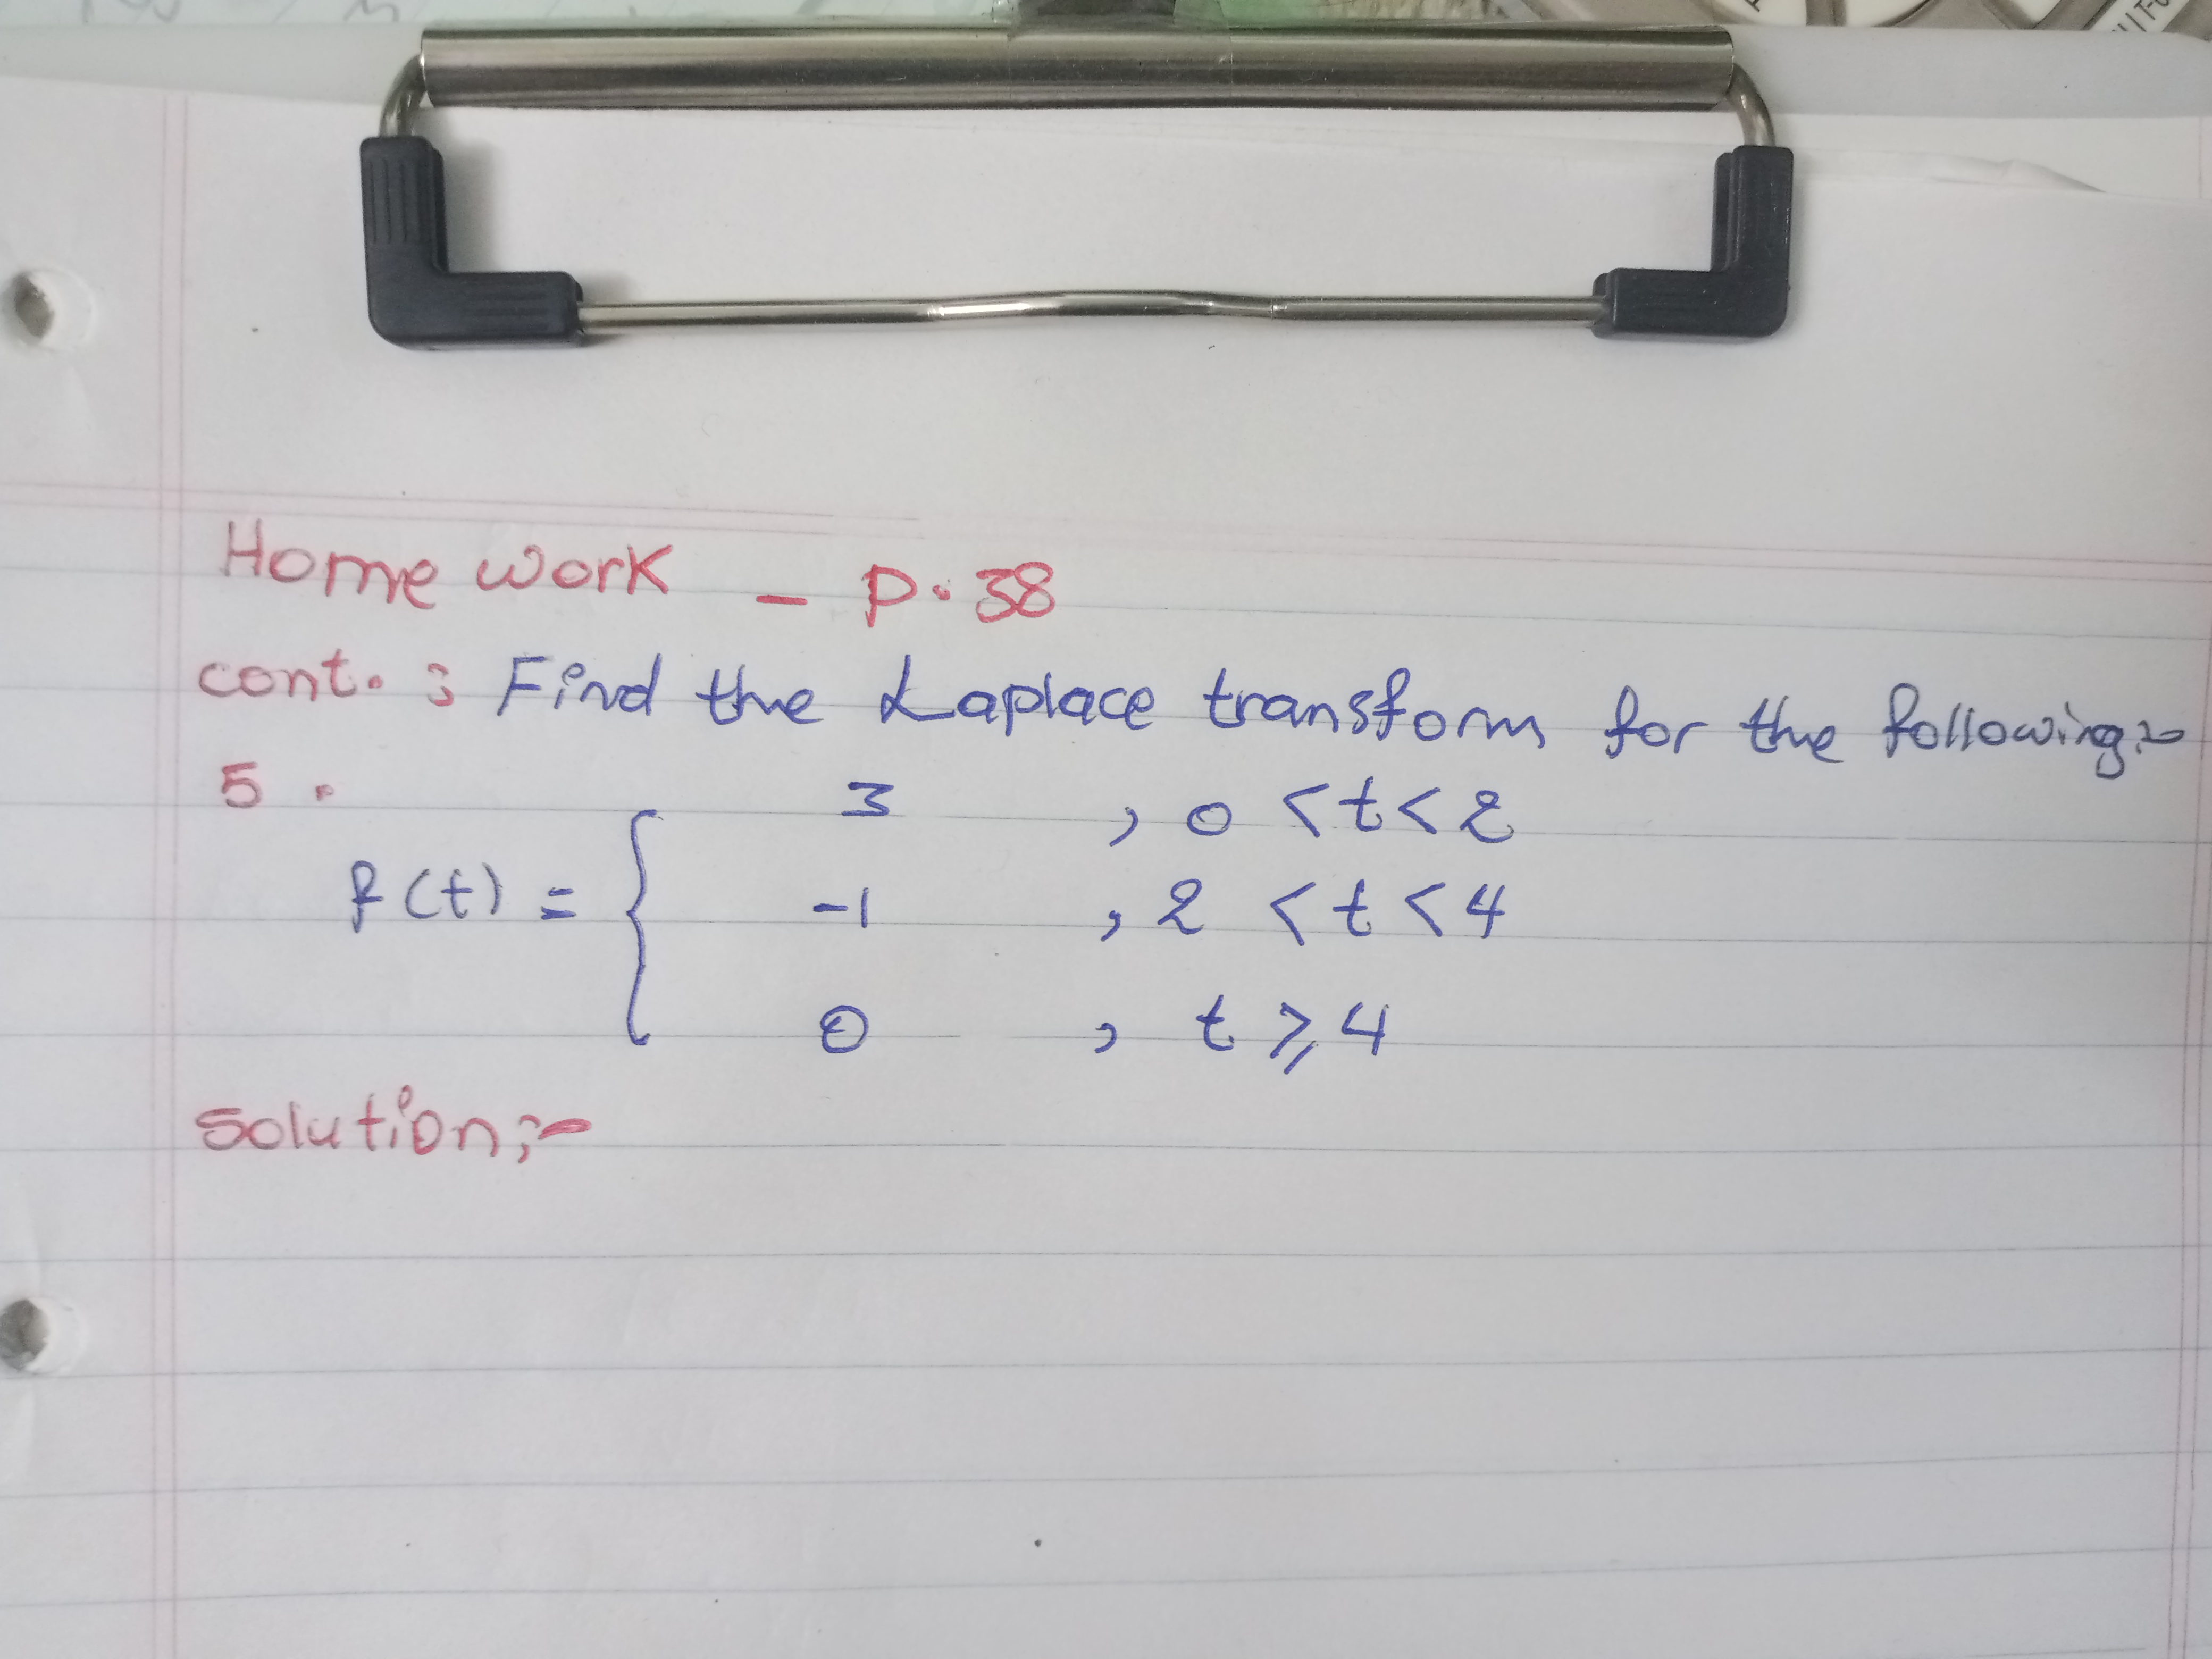 Home work - p. 38
cont. : Find the Laplace transform for the following:-
5 .
3 , 0 < t < 2
f(t) = { -1 , 2 < t < 4
0 , t ⩾ 4
solution:-